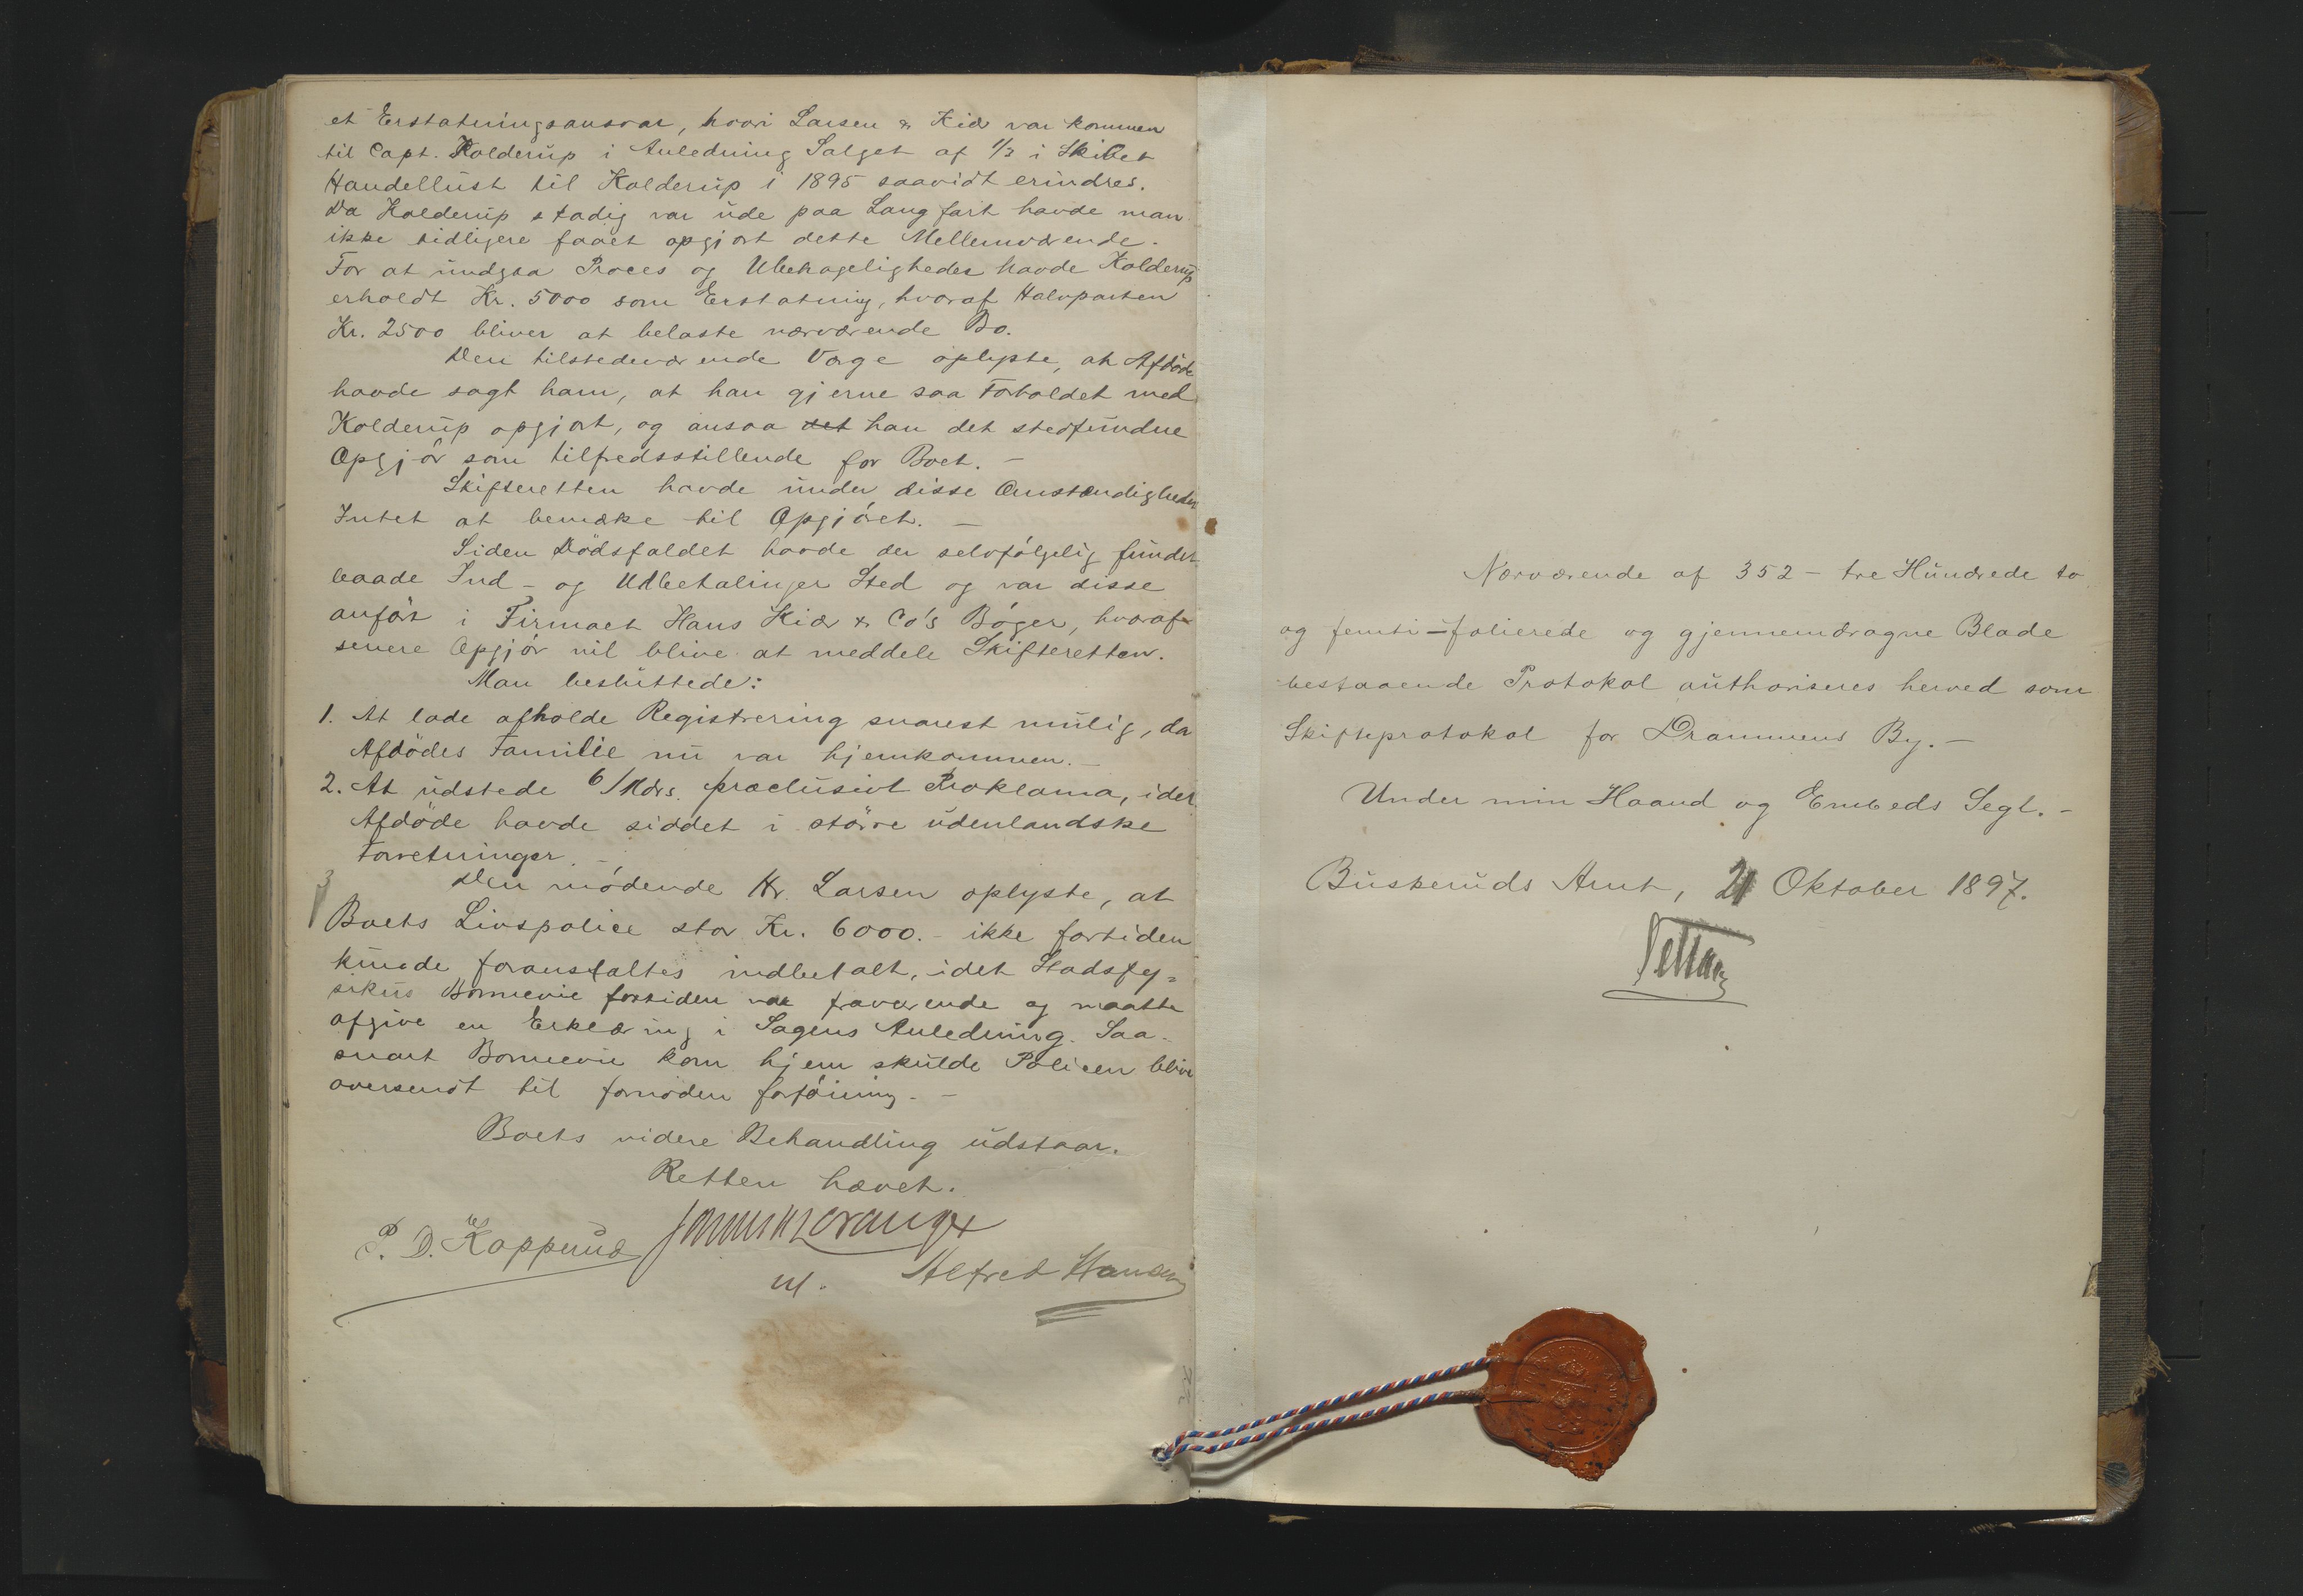 et Erstatningsansvar, hvori Larsen & Kiær var kommen
til Capt. Kolderup i Anledning Salget af 1/3 i Skibet
Handellust til Kolderup i 1895 saavidt erindres.
Da Kolderup stadig var ude paa Langfart havde man
ikke tidligere faaet opgjort dette Mellemværende.
For at undgaa Proces og Ubehageligheder havde Kolderup
erholdt Kr. 5000 som Erstatning, hvoraf Halvparten
Kr. 2500 bliver at belaste nærværende Bo.
Den tilstedeværende Værge oplyste, at Afdøde
havde sagt ham, at han gjerne saa Forholdet med
Kolderup opgjort, og ansaa det han det stedfundne
Opgjør som tilfredsstillende for Boet. –
Skifteretten havde under disse Omstændigheder
Intet at bemærke til Opgjøret. –
Siden Dødsfaldet havde der selvfølgelig fundet
baade Ind- og Udbetalinger Sted og var disse
anført i Firmaet Hans Kiær & Co's Bøger, hvoraf
senere Opgjør vil blive at meddele Skifteretten.
Man besluttede:
1. At lade afholde Registrering snarest mulig, da
Afdødes Familie nu var hjemkommen. –
2. At udstede 6/Mdrs. præclusivt Proklama, idet
Afdøde havde siddet i større udenlandske
Forretninger. –
3
Den mødende Hr. Larsen oplyste, at
Boets Livspolice stor Kr. 6000.- ikke fortiden
kunde foranstaltes indbetalt, idet Stadsfy=
sikus Bonnevie fortiden var fraværende og maatte
afgive en Erklæring i Sagens Anledning. Saa-
snart Bonnevie kom hjem skulde Policen blive
oversendt til fornøden forføining. –
Boets videre Behandling udstaar.
Retten hævet.
P. D. Kopperud
Alfred Hansen
Nærværende af 352 – tre Hundrede to
og femti – folierede og gjennemdragne Blade
bestaaende Protokol authoriseres herved som
Skifteprotokol for Drammens By. –
Under min Haand og Embeds Segl. –
Buskeruds Amt, 21 Oktober 1897.